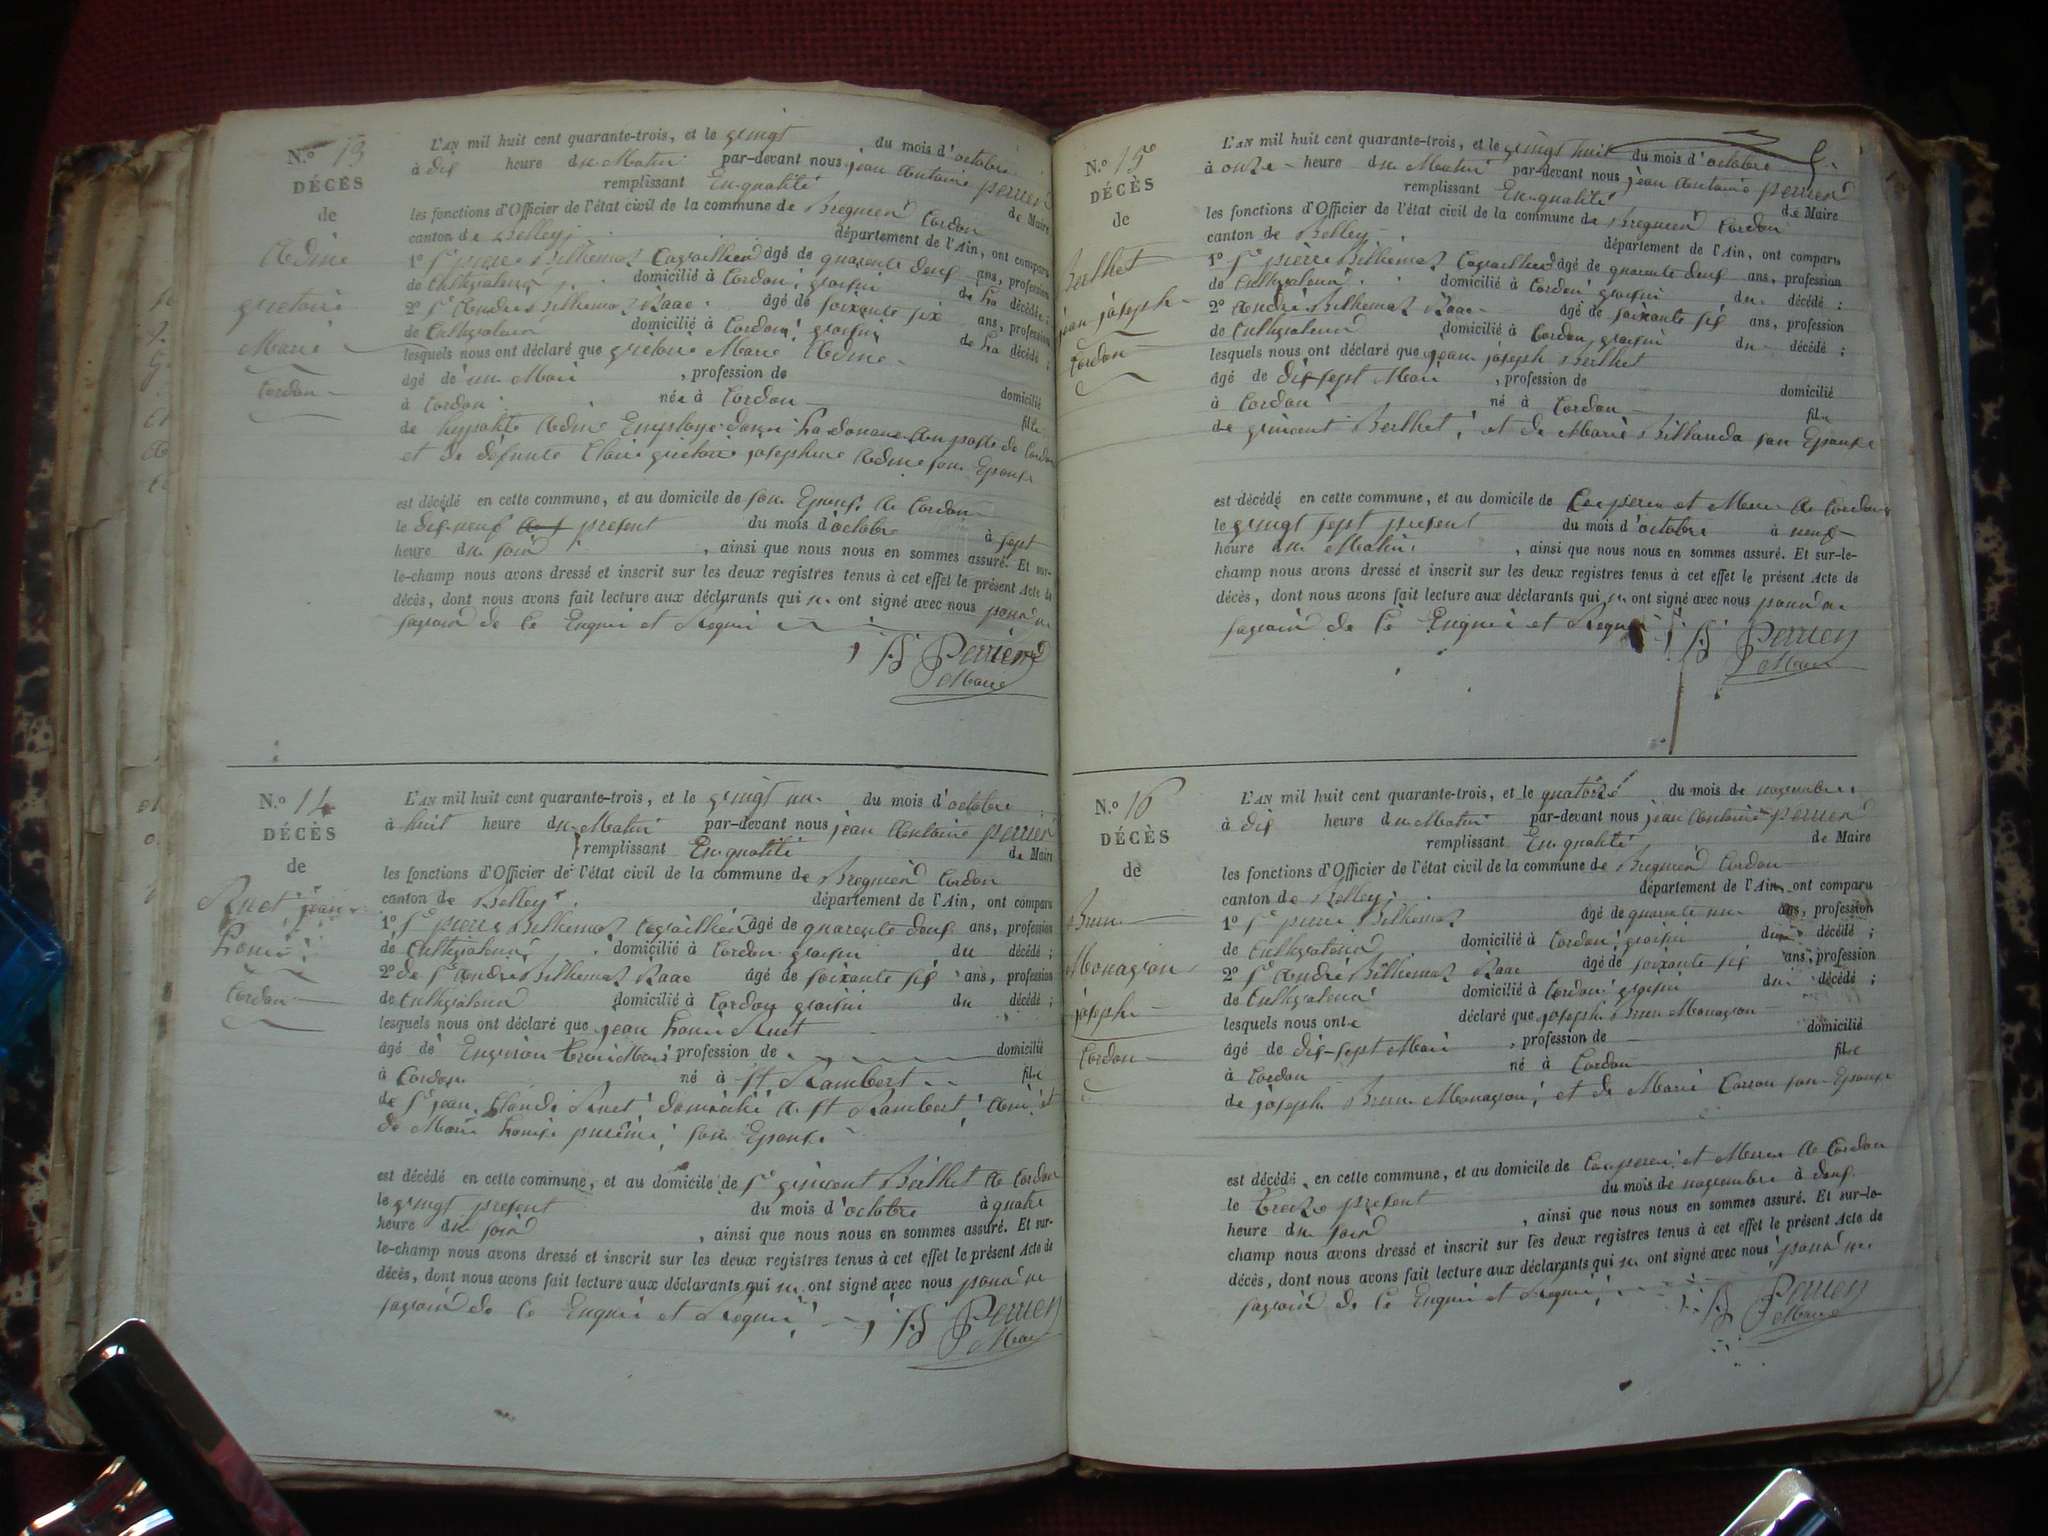 N.º 13
DÉCÈS
de
Adine
Marie
Cordon
L'AN mil huit cent quarante-trois, et le vingt du mois d'octobre
à dix heure du Matin par-devant nous jean Antoine perrier
remplissant En qualité de Maire
les fonctions d'Officier de l'état civil de la commune de Bregnier Cordon
canton de Belley département de l'Ain, ont comparu
1º Sr pierre Bilhemaz âgé de quarente deux ans, profession
de Cultivateur domicilié à Cordon voisin de La décédée;
2º Sr André Bilhemaz âgé de soixante six ans, profession
de Cultivateur domicilié à Cordon voisin de La décédé;
lesquels nous ont déclaré que Marie Adine
âgé de un Moi , profession de domicilié
à Cordon née à Cordon fille
de hypolite Adine Employé dans La douane Au poste de Cordon
et de défunte josephine Adine son Epouse
est décédé en cette commune, et au domicile de son de Cordon
le dix-neuf présent du mois d'octobre à sept
heure du soir , ainsi que nous nous en sommes assuré. Et sur-
le-champ nous avons dressé et inscrit sur les deux registres tenus à cet effet le présent Acte de
décès, dont nous avons fait lecture aux déclarants qui n. ont signé avec nous pour ne
savoir de Ce Enquis et Requi
Perrier
Maire
N.º 14
DÉCÈS
de
jean
Loui
Cordon
L'AN mil huit cent quarante-trois, et le vingt un du mois d'octobre
à huit heure du Matin par-devant nous jean Antoine perrier
remplissant En qualité de Maire
les fonctions d'Officier de l'état civil de la commune de Bregnier Cordon
canton de Belley département de l'Ain, ont comparu
1º Sr pierre Bilhemaz âgé de quarente deux ans, profession
de Cultivateur domicilié à Cordon voisin du décédé;
2º de Sr André Bilhemaz âgé de soixante six ans, profession
de Cultivateur domicilié à Cordon voisin du décédé;
lesquels nous ont déclaré que jean Loui
âgé de Environ trois Moi profession de domicilié
à Cordon né à St. Rambert fils
de Sr jean Claude domicilié à St Rambert Ain, et
de Marie Louise son Epouse
est décédé en cette commune, et au domicile de Sr vincent Berthet de Cordon
le vingt present du mois d'octobre à quatre
heure du soir , ainsi que nous nous en sommes assuré. Et sur-
le-champ nous avons dressé et inscrit sur les deux registres tenus à cet effet le présent Acte de
décès, dont nous avons fait lecture aux déclarants qui n. ont signé avec nous pour ne
savoir de Ce Enquis et Requi
Perrier
Maire
N.º 15
DÉCÈS
de
Berthet
jean joseph
Cordon
L'AN mil huit cent quarante-trois, et le vingt huit du mois d'octobre
à onze heure du Matin par-devant nous jean Antoine perrier
remplissant En qualité de Maire
les fonctions d'Officier de l'état civil de la commune de Bregnier Cordon
canton de Belley département de l'Ain, ont comparu
1º Sr pierre Bilhemaz âgé de quarente deux ans, profession
de Cultivateur domicilié à Cordon voisin du décédé;
2º André Bilhemaz âgé de soixante six ans, profession
de Cultivateur domicilié à Cordon voisin du décédé;
lesquels nous ont déclaré que jean joseph Berthet
âgé de dix-sept Moi , profession de domicilié
à Cordon né à Cordon fils
de vincent Berthet, et de Marie son Epouse
est décédé en cette commune, et au domicile de Ces peres et Mere de Cordon
le vingt sept present du mois d'octobre à neuf
heure du Matin , ainsi que nous nous en sommes assuré. Et sur-le-
champ nous avons dressé et inscrit sur les deux registres tenus à cet effet le présent Acte de
décès, dont nous avons fait lecture aux déclarants qui n. ont signé avec nous pour ne
savoir de Ce Enquis et Requi
Perrier
Maire
N.º 16
DÉCÈS
de
Brun
Monavon
joseph
Cordon
L'AN mil huit cent quarante-trois, et le quatorze du mois de novembre
à dix heure du Matin par-devant nous jean Antoine perrier
remplissant En qualité de Maire
les fonctions d'Officier de l'état civil de la commune de Bregnier Cordon
canton de Belley département de l'Ain, ont comparu
1º Sr pierre Bilhemaz âgé de quarente ans, profession
de Cultivateur domicilié à Cordon voisin du décédé;
2º Sr André Bilhemaz âgé de soixante six ans, profession
de Cultivateur domicilié à Cordon voisin du décédé;
lesquels nous ont déclaré que joseph Brun Monavon
âgé de dix-sept Moi , profession de domicilié
à Cordon né à Cordon fils
de joseph Brun Monavon, et de Marie son Epouse
est décédé en cette commune, et au domicile de Ces peres et Mere de Cordon
le treize present du mois de novembre à deux
heure du soir , ainsi que nous nous en sommes assuré. Et sur-le-
champ nous avons dressé et inscrit sur les deux registres tenus à cet effet le présent Acte de
décès, dont nous avons fait lecture aux déclarants qui n. ont signé avec nous pour ne
savoir de Ce Enquis et Requi
Perrier
Maire